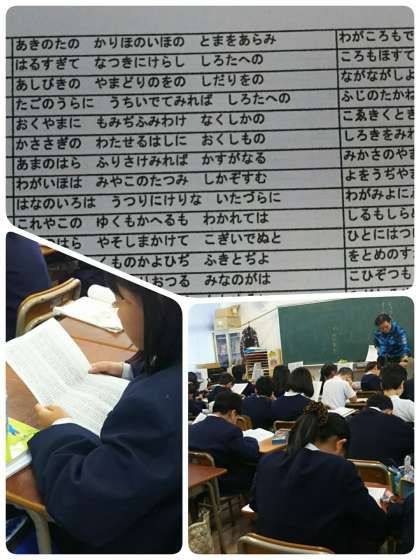 あきのたの かりほのいほの とまをあらみ わがころもで
はるすぎて なつきにけらし しろたへの ころもほすて
あしびきの やまどりのをの しだりをの ながながしよ
たごのうらに うちいでてみれば しろたへの ふじのたかね
おくやまに もみぢふみわけ なくしかの こゑきくとき
かささぎの わたせるはしに おくしもの しろきをみ
あまのはら ふりさけみれば かすがなる みかさのや
わがいほは みやこのたつみ しかぞすむ よをうぢや
はなのいろは うつりにけりな いたづらに わがみよに
これやこの ゆくもかへるも わかれては しるもしら
はら やそしまかけて こぎいでぬと ひとにはつ
くものかよひぢ ふきとぢよ をとめのす
おつる みなのがは こひぞつも